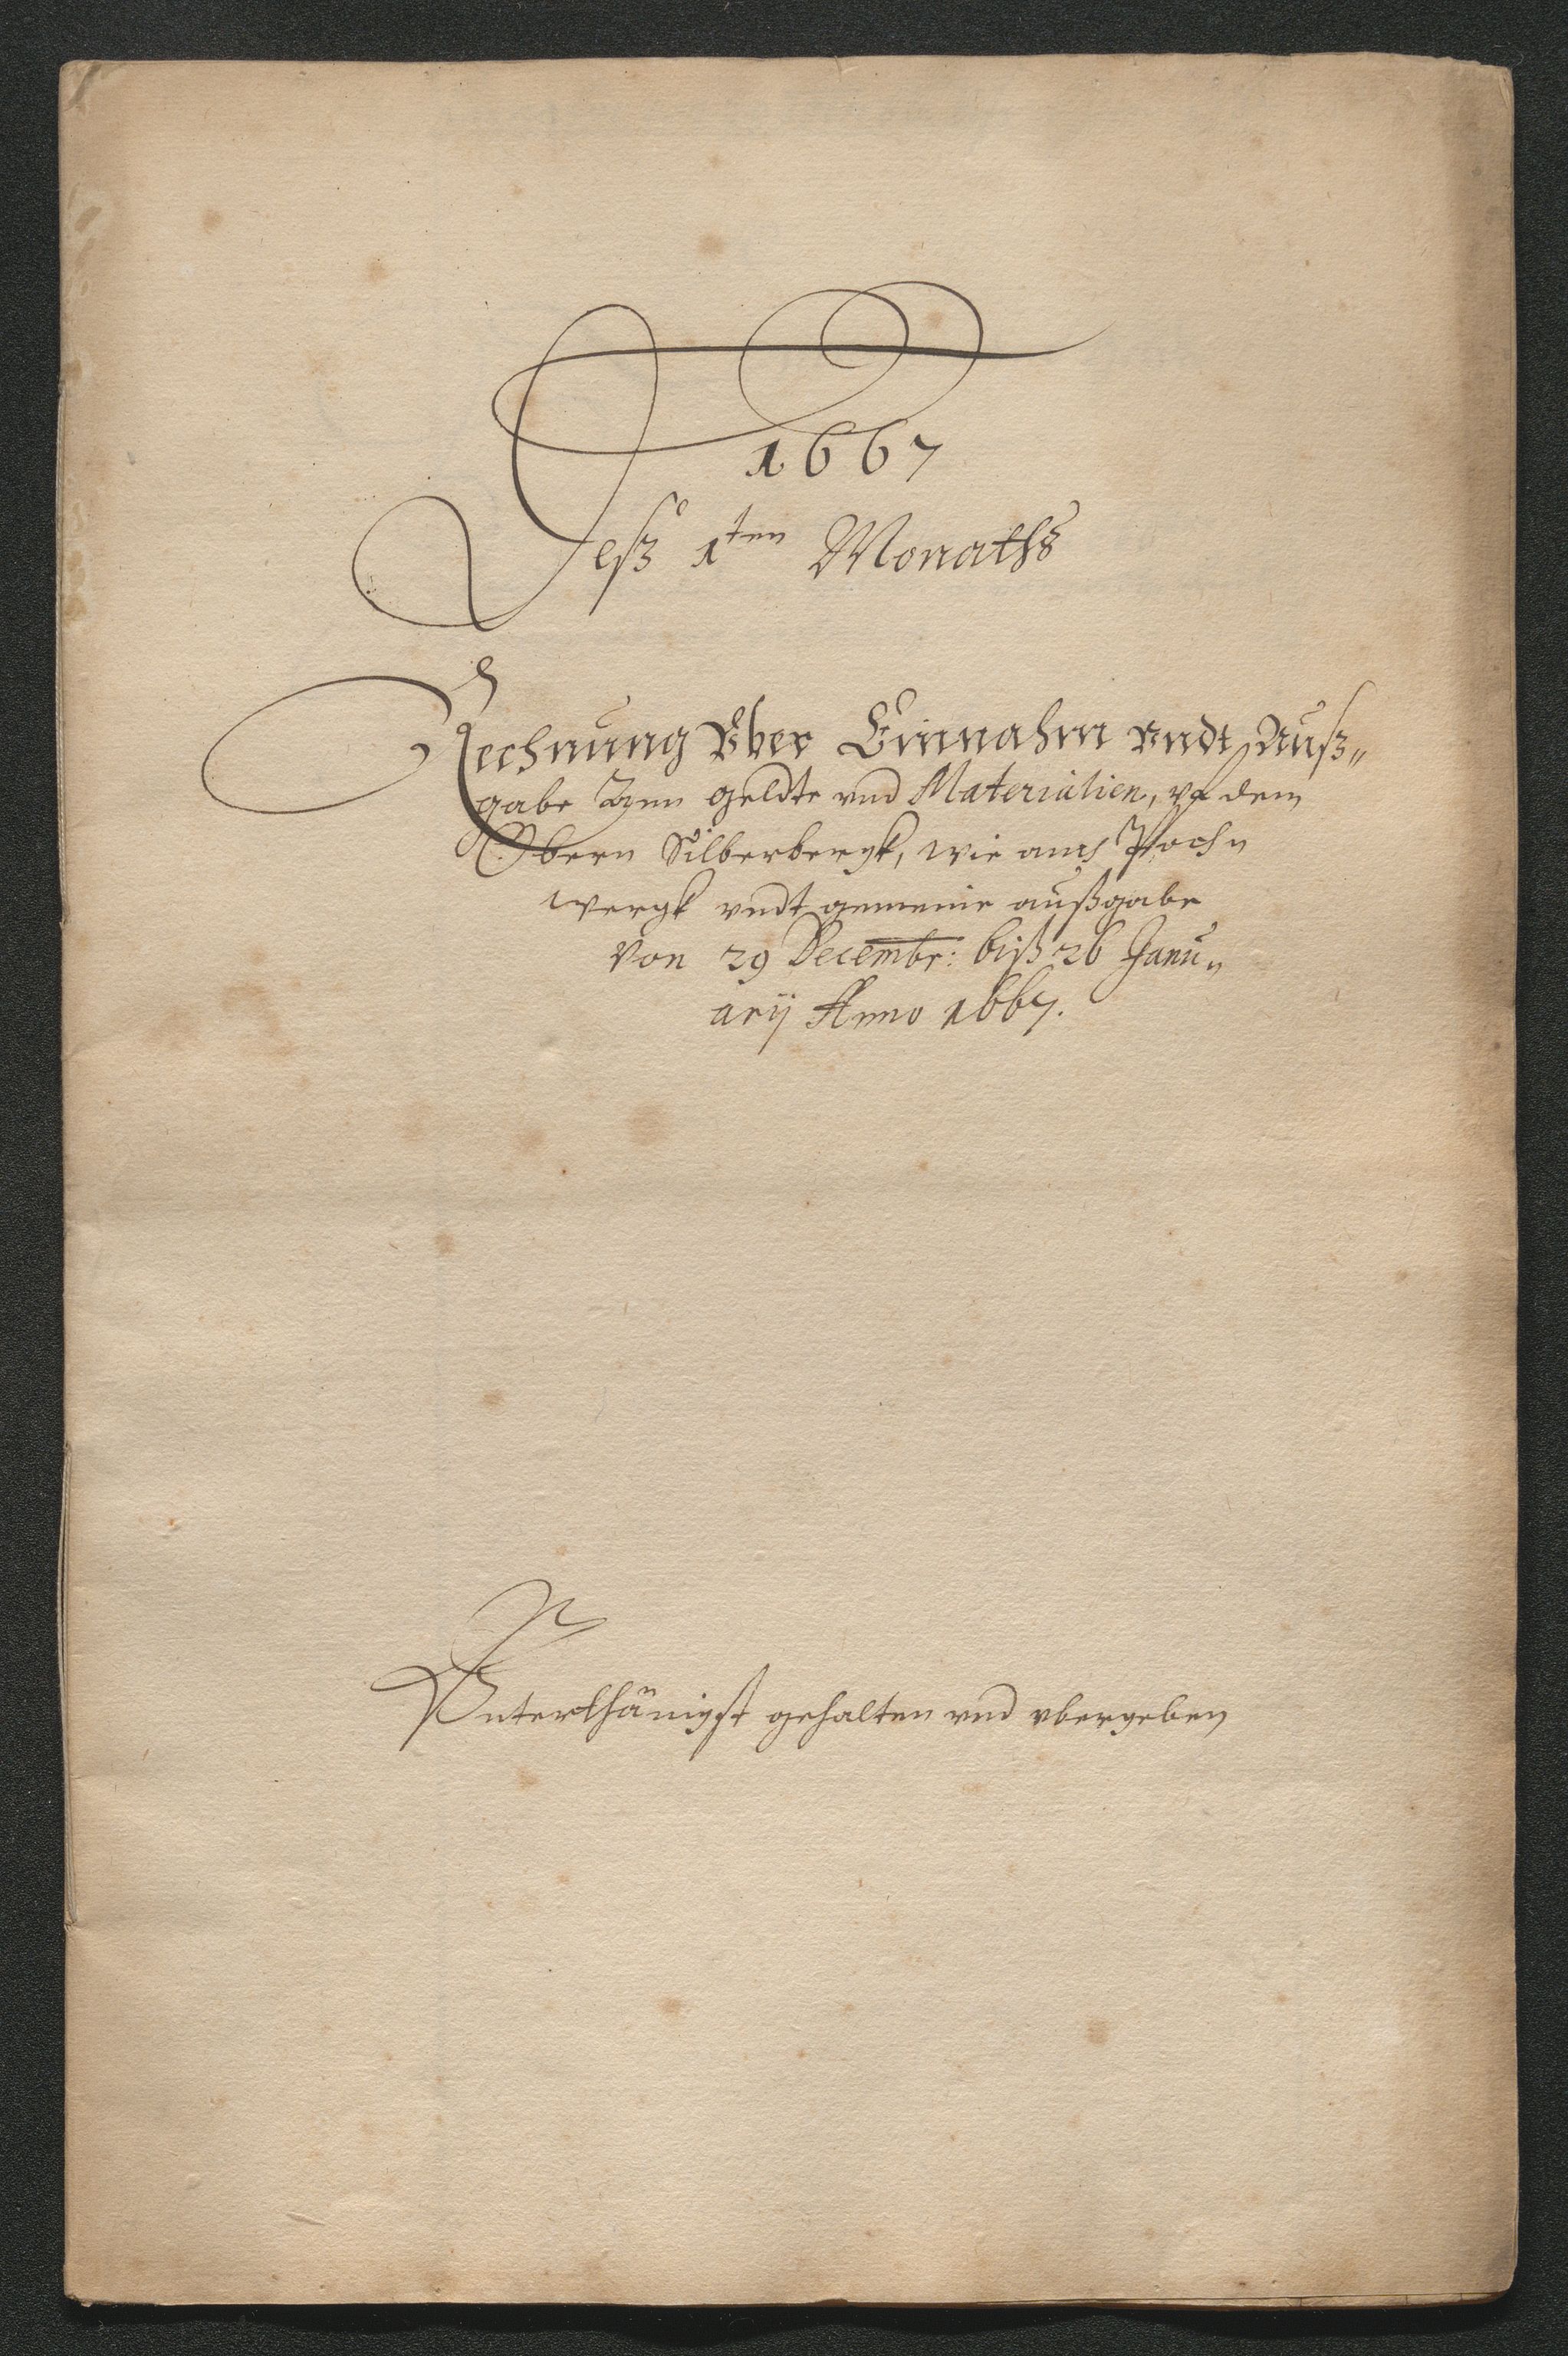 1667
Deß 1ten Monaths
Rechnung Vber Einnahm vndt Auß„
gabe Ann geldte vnd Materialien, vf dem
Obern Silberbergk, wie auch Poch„
wergk vndt gemeine außgabe
Von 29 Decembr: biß 26 Janu„
arij Anno 1667.
Vnterthänigst gehalten vnd vbergeben